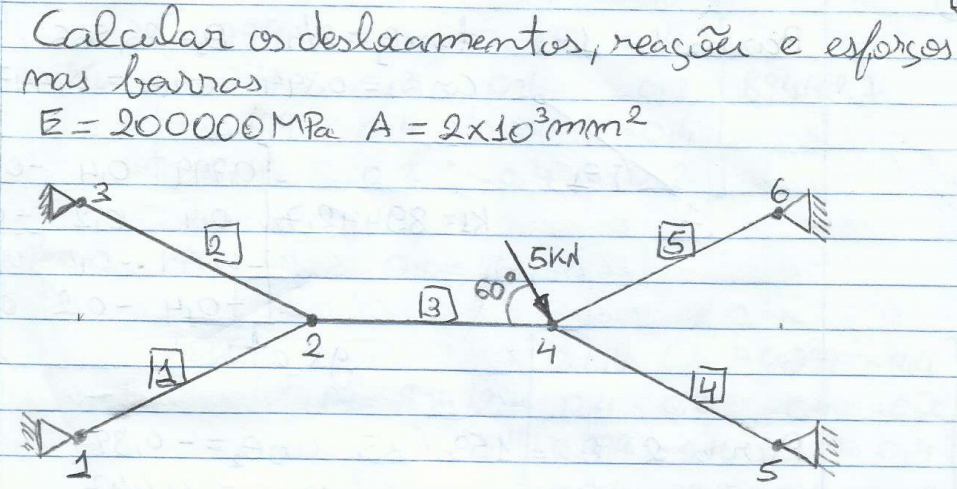 Calcular os deslocamentos, reações e esforços
nas barras
E = 200000MPa A = 2x10³mm²
3
6
2
5KN
5
60°
3
2
4
1
4
1
5